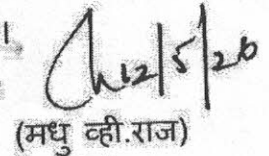 12/5/20
(मधु व्ही.राज)